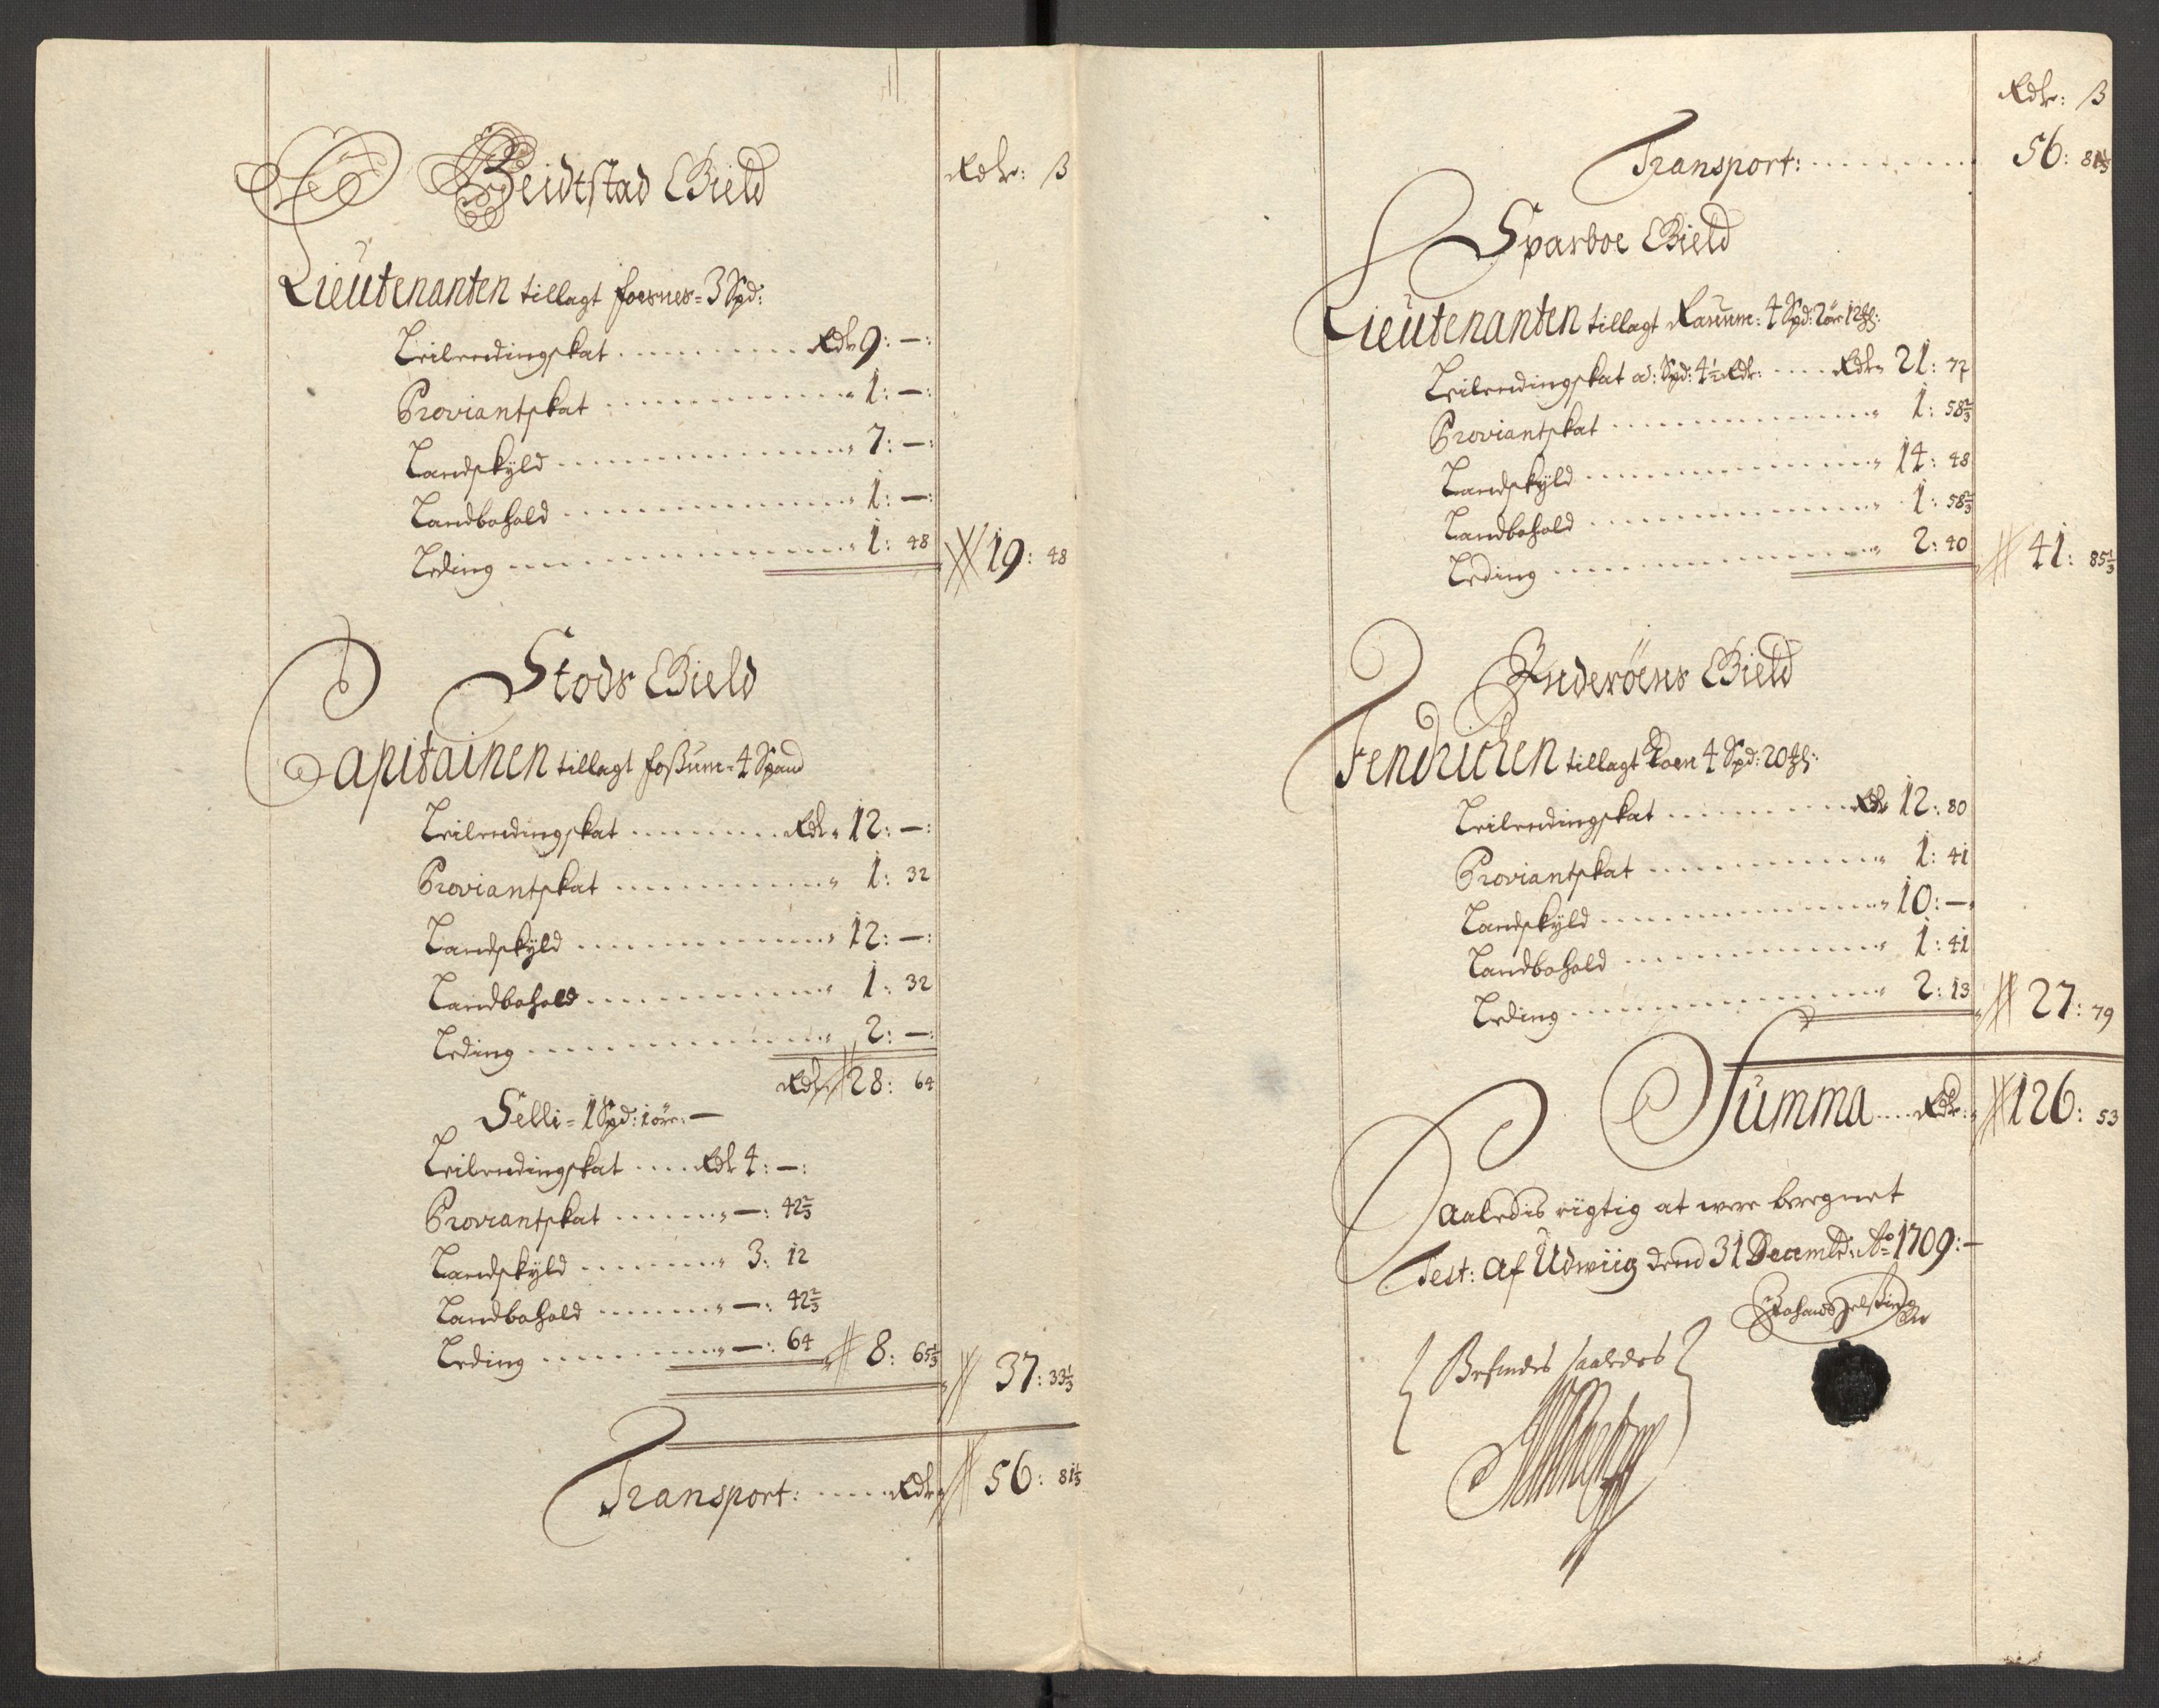 Beidtstad Gield
Rdr: ß
Lieutenanten tillagt Foesnes= 3 Spd:
Leilendingskat .......... Rdr 9: —:
Proviantskat .......... 1: —:
Landskyld .......... 7: —:
Landbohold .......... 1: —:
Leding .......... 1: 48 19: 48
Stods Gield
Capitainen tillagt Fossum= 4 Spand
Leilendingskat ........ Rdr 12: —:
Proviantskat .......... 1: 32
Landskyld .......... 12: —:
Landbohold .......... 1: 32
Leding .......... 2: —:
Rdr 28: 64
Selli= 1 Spd: 1 øre: —
Leilendingskat .... Rdr 4: —:
Proviantskat ...... —: 42 2/3
Landskyld ....... 3: 12
Landbohold ...... —: 42 2/3
Leding ........ —: 64 8: 65 1/3 37: 33 1/3
Transport: ..... Rdr 56: 81 1/3
Rdr: ß
Transport: ......... 56: 81 1/3
Sparboe Gield
Lieutenanten tillagt Raum: 4 Spd: 2 ør 12
Leilendingskat a: Spd: 4 1/2 Rdr: .... Rdr 21: 77
Proviantskat .......... 1: 58 2/3
Landskyld .......... 14: 48
Landbohold .......... 1: 58 2/3
Leding .......... 2: 40 41: 85 1/3
Inderöens Gield
Fendrichen tillagt 4 Spd: 20
Leilendingskat ........ Rdr 12: 80
Proviantskat .......... 1: 41
Landskyld .......... 10: —:
Landbohold .......... 1: 41
Leding .......... 2: 13 27: 79
Summa .... Rdr: 126: 53
Saaledis rigtig at were beregnet
Test: Af Udwiig dend 31 Decembr: Ao 1709: —
Befindes saaledes